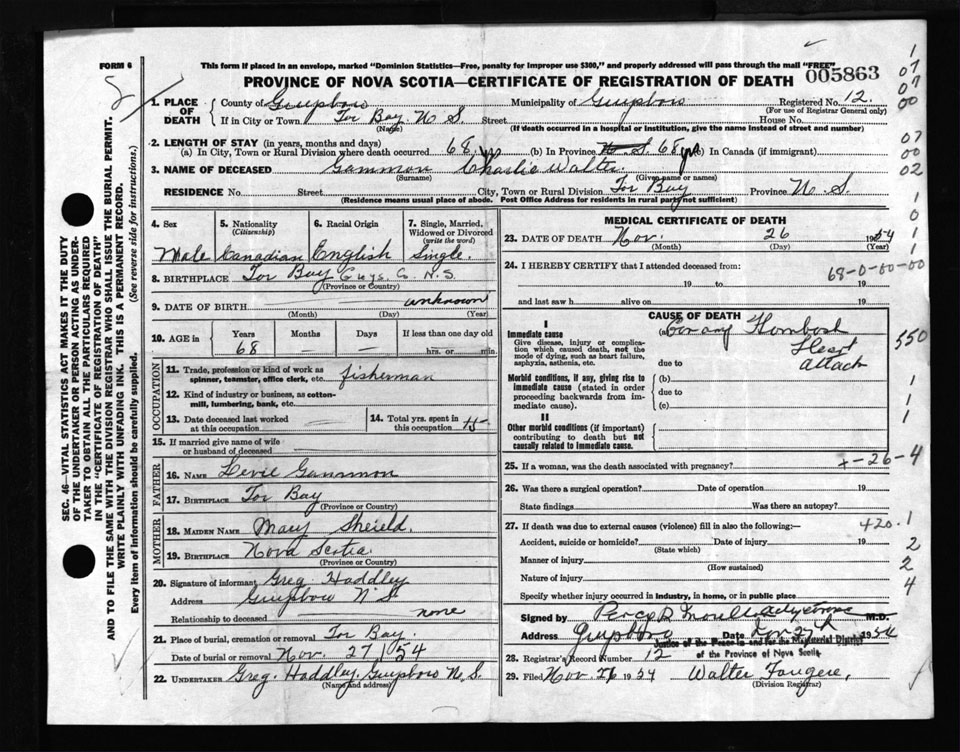 FORM 6
This form if placed in an envelope, marked "Dominion Statistics—Free, penalty for improper use $300," and properly addressed will pass through the mail "FREE"
PROVINCE OF NOVA SCOTIA—CERTIFICATE OF REGISTRATION OF DEATH
005863
SEC. 46—VITAL STATISTICS ACT MAKES IT THE DUTY OF THE UNDERTAKER OR PERSON ACTING AS UNDERTAKER TO OBTAIN ALL THE PARTICULARS REQUIRED IN THE "CERTIFICATE OF REGISTRATION OF DEATH"
AND TO FILE THE SAME WITH THE DIVISION REGISTRAR WHO SHALL ISSUE THE BURIAL PERMIT.
WRITE PLAINLY WITH UNFADING INK. THIS IS A PERMANENT RECORD.
Every item of information should be carefully supplied. (See reverse side for instructions.)
1. PLACE OF DEATH County of Guysboro Municipality of Guysboro Registered No. 12.
(For use of Registrar General only)
If in City or Town Tor Bay. N S. Street House No.
(Name) (If death occurred in a hospital or institution, give the name instead of street and number)
2. LENGTH OF STAY (in years, months and days)
(a) In City, Town or Rural Division where death occurred 68 yrs (b) In Province N. S. 68 yrs (c) In Canada (if immigrant)
3. NAME OF DECEASED Gammon Charlie Walter
(Surname) (Given name or names)
RESIDENCE No. Street City, Town or Rural Division Tor Bay Province N. S.
(Residence means usual place of abode. Post Office Address for residents in rural parts not sufficient)
4. Sex 5. Nationality (Citizenship) 6. Racial Origin 7. Single, Married, Widowed or Divorced (write the word)
Male Canadian English Single.
8. BIRTHPLACE Tor Bay Guys. Co. N.S.
(Province or Country)
9. DATE OF BIRTH unknown
(Month) (Day) (Year)
10. AGE in Years Months Days If less than one day old
68 — — hrs. or min.
OCCUPATION
11. Trade, profession or kind of work as spinner, teamster, office clerk, etc. fisherman
12. Kind of industry or business, as cotton-mill, lumbering, bank, etc.
13. Date deceased last worked at this occupation 14. Total yrs. spent in this occupation 15
15. If married give name of wife or husband of deceased
FATHER
16. NAME Levie Gammon
17. BIRTHPLACE Tor Bay
(Province or Country)
MOTHER
18. MAIDEN NAME Mary Sheild.
19. BIRTHPLACE Nova Scotia.
(Province or Country)
20. Signature of informant Greg Haddley
Address Guysboro N S
Relationship to deceased none
21. Place of burial, cremation or removal Tor Bay.
Date of burial or removal Nov. 27 54
22. UNDERTAKER Greg. Haddley. Guysboro N. S.
(Name and address)
MEDICAL CERTIFICATE OF DEATH
23. DATE OF DEATH Nov. 26 1954
(Month) (Day) (Year)
24. I HEREBY CERTIFY that I attended deceased from:
68-0-00-00
19 to 19
and last saw h alive on 19
CAUSE OF DEATH
I
Immediate cause
Give disease, injury or complication which caused death, not the mode of dying, such as heart failure, asphyxia, asthenia, etc.
(a) Heart attack
due to
Morbid conditions, if any, giving rise to immediate cause (stated in order proceeding backwards from immediate cause).
(b)
due to
(c)
II
Other morbid conditions (if important) contributing to death but not causally related to immediate cause.
25. If a woman, was the death associated with pregnancy?
26. Was there a surgical operation? Date of operation 19
State findings Was there an autopsy?
27. If death was due to external causes (violence) fill in also the following:— 420.1
Accident, suicide or homicide? Date of injury 19
(State which)
Manner of injury
(How sustained)
Nature of injury
Specify whether injury occurred in industry, in home, or in public place
Signed by M.D.
Address Guysboro Date Nov 27th 1954
Justice of the Peace in and for the Municipal District
of the Province of Nova Scotia
28. Registrar's Record Number 12
29. Filed Nov. 26 1954 Walter Fougere,
(Division Registrar)
1
07
07
00
07
00
02
1
0
1
1
550
1
1
1
2
2
4